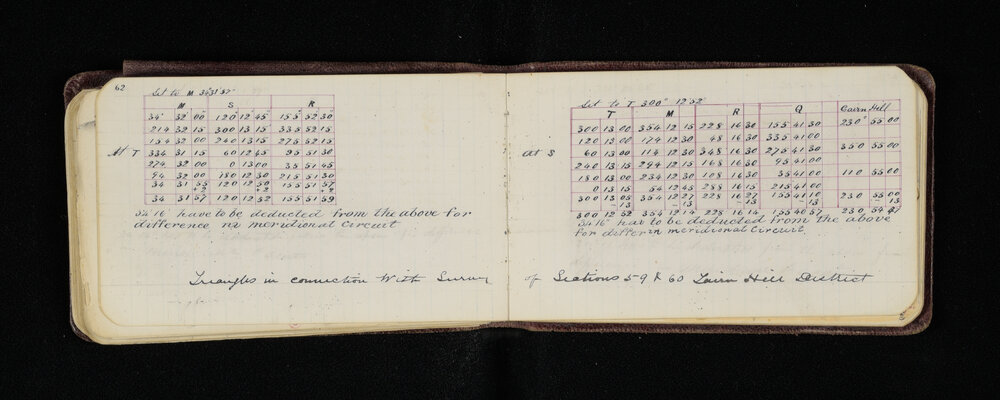 62
Set to M 34° 31' 57"
M S R
34° 32 00" 120 12 45" 155° 52 30
214 32 15 300 13 15 335 52 15
154 32 00 240 13 15 275 52 15
At T 334 31 15 60 12 45 95 51 30
274 32 00 0 13 00 35 51 45
94 32 00 180 12 30 215 51 30
34 31 55 120 12 50 155 51 57
+2 +2 +2
34 31 57 120 12 52 155 51 59
have to be deducted from the above for
difference in meridional circuit
Triangles in connection With Survey
Set to T 300° 12' 52"
T M R Q Cairn Hill
300 13 00 354 12 15 228 16 30 155 41 30 230° 55 00
120 13 00 174 12 30 48 16 30 335 41 00
At S 60 13 00 114 12 30 348 16 30 275 41 30 350 55 00
240 13 15 294 12 15 168 16 30 95 41 00
180 13 00 234 12 30 108 16 30 35 41 00 110 55 00
0 13 15 54 12 45 288 16 15 215 41 00
300 13 05 354 12 27 228 16 27 155 41 10 230 55 00
-13 -13 -13 -13 -13
300 12 52 354 12 14 228 16 14 155 40 57 230 54 47
has to be deducted from the above
for differ in meridional Circuit.
of Sections 59 & 60 Cairn Hill District